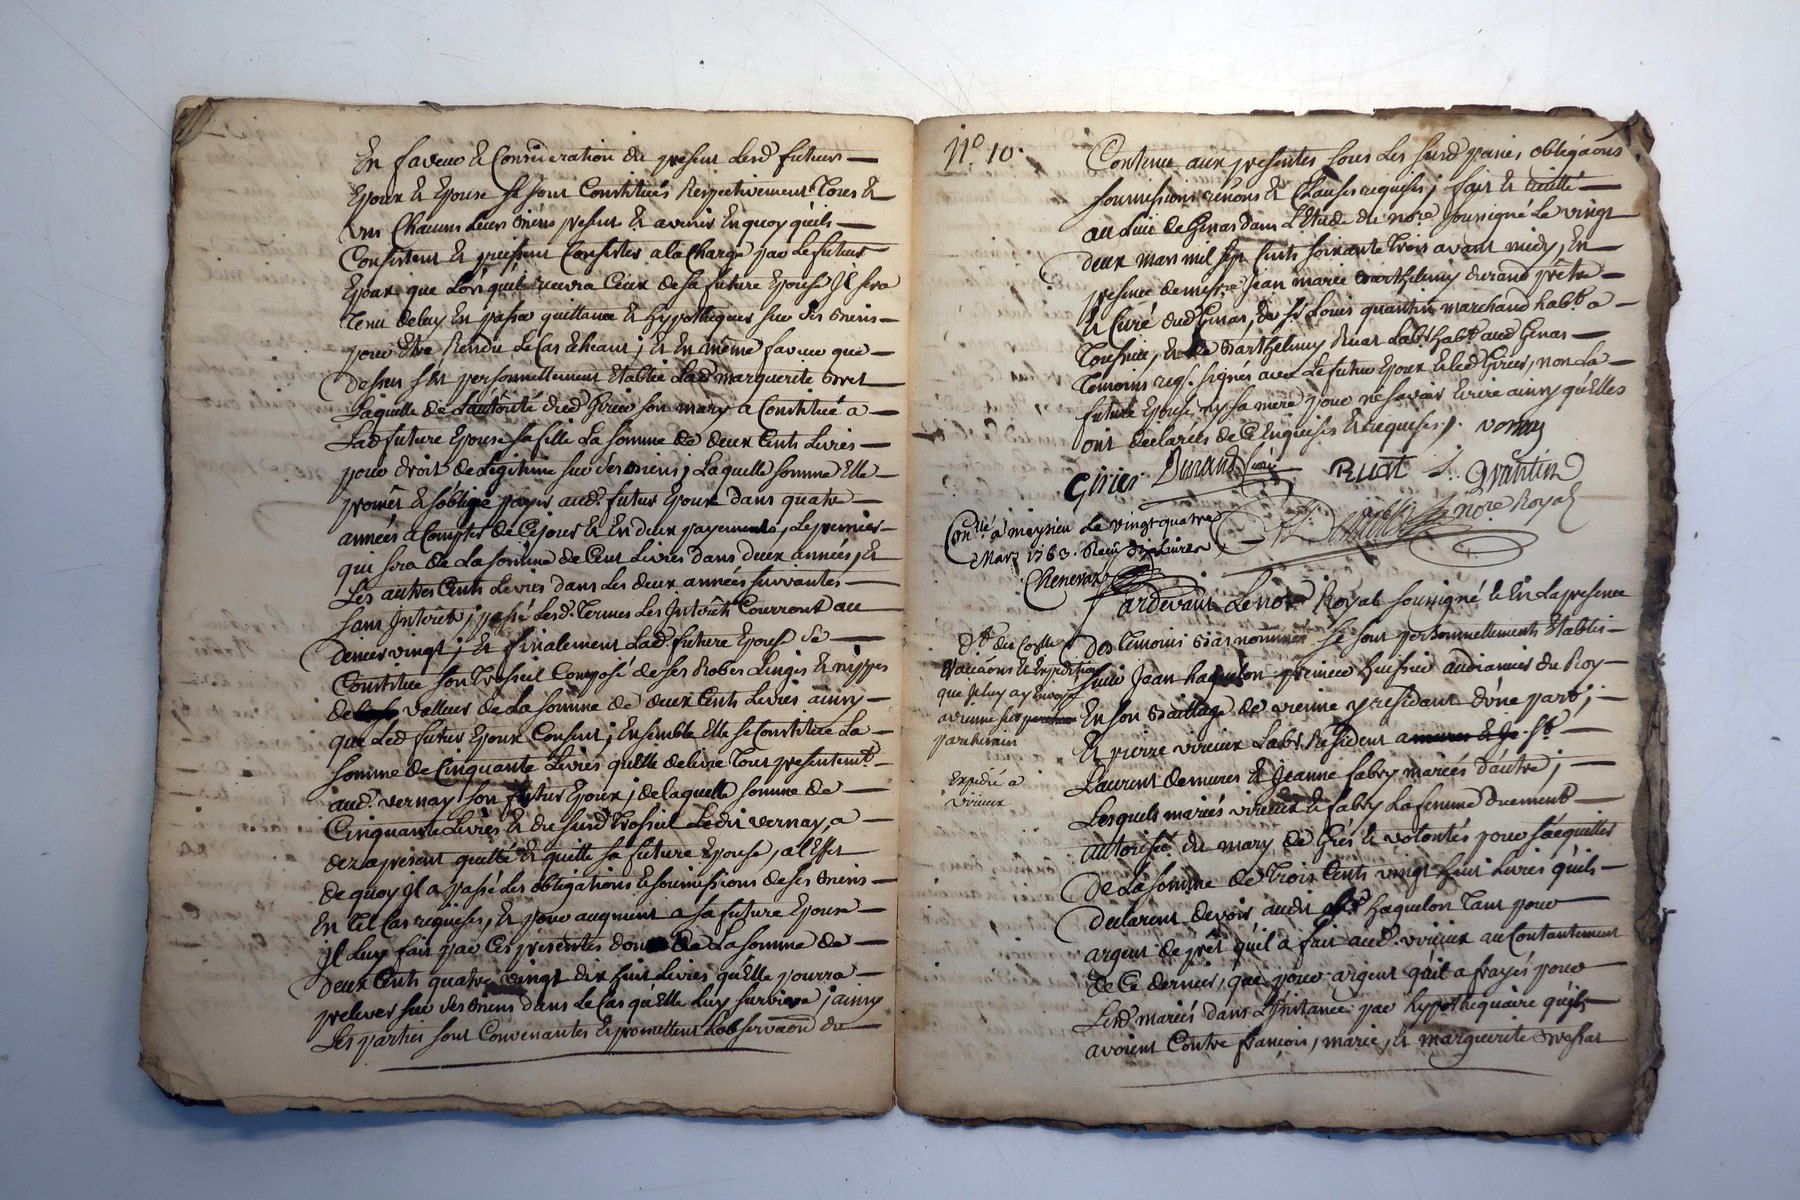 En faveur & Consideration du present Lesd futurs
Epoux & Epouse se sont Constitués Respectivement Tous &
uns Chacuns Leurs Biens presents & avenir En quoy qu'ils
Consistent & puissent Consister a la charge par Le futur
Epoux que Lorsqu'il recevra Ceux de sa future Epouse Il sera
Tenu de luy En passer quittance & hypotheques sur ses Biens
pour Etre Rendu Le Cas echeant ; & En même faveur que
dessus s'est personnellement Etablie Lad marguerite
Laquelle de L'autorité dud Girier son mary a Constitué a
Lad future Epouse sa fille La somme de deux Cents Livres
pour droit de Legitime sur ses Biens ; Laquelle somme Elle
promet & s'oblige payer aud. futur Epoux dans quatre
années a Compter de Ce jour & En deux payements, Le premier
qui sera de La somme de Cent Livres dans deux années, &
Les autres Cents Livres dans Les deux années suivantes
sans Interêt ; passé Lesd. Termes Les Interêts Courront au
denier vingt ; & finalement Lad. future Epouse se
Constitue son Trosseil Composé de ses Robes Linges & nippes
de valleur de La somme de deux Cents Livres ainsy
que Led futur Epoux Consent ; Ensemble Elle se Constitue La
somme de Cinquante Livres qu'elle delivre Tout presentemt
aud. vernay son futur Epoux ; de laquelle somme de
Cinquante Livres & du susd Trosseil Ledit vernay, a
dez a present quitté & quitte sa future Epouse, a l'Effet
de quoy Il a passé Les obligations & soumissions de ses Biens
En Tel Cas requises, & pour augment a sa future Epouse
Il Luy fait par Ces presentes don de La somme de
deux Cents quatre vingt dix huit Livres qu'Elle pourra
prelever sur ses Biens dans Le Cas qu'Elle Luy survive ; ainsy
Les parties sont Convenantes & promettent L'observaon du
N.º 10.
Contenu aux presentes sous Les susd paines obligaons
soumissions renons & Clauses requises ; fait &
au Lieu de Genas dans L'Etude du nore soussigné Le vingt
deux mars mil sept Cents soixante Trois avant midy, En
presence de messre Jean marie Barthelemy durand prêtre
& Curé dud Genas, de Sr Louis quantin marchand habt. a
& de Barthelemy Ruat Labr habt. aud Genas
Temoins req. signés avec Le futur Epoux & led Girier, non La
future Epouse ny sa mere pour ne savoir Ecrire ainsy qu'Elles
ont declarées de Ce Enquises & requises ;. vernay
Girier Durand Curé Ruat L. Quantin
nore Royal
Conllé a meysieu Le vingt quatre
Mars 1763. Reçu dix Livres
Chenevaz
Pardevant Le nore Royal soussigné & En La presence
des Temoins Bas nommés se sont personnellements Etablis
sieur Jean haquelon premier huissier audiancier du Roy
En son Bailliage de vienne y residant d'une part ;
& pierre virieux Labr. Resident St
Laurent de mures & Jeanne fabry mariés d'autre ;
Lesquels mariés virieux & fabry La femme duement
autorisée du mary de Grés & volontés pour s'acquitter
de La somme de Trois Cents vingt huit Livres qu'ils
declarent devoir audit sr haquelon Tant pour
argent de prêt qu'il a fait aud. virieux au Contantement
de Ce dernier, que pour argent qu'il a frayés pour
Lesd mariés dans L'Instance par hypothequaire qu'ils
avoient Contre françois, marie, & marguerite
que Je luy ay Envoyé
parchemin
Expedié a
virieux